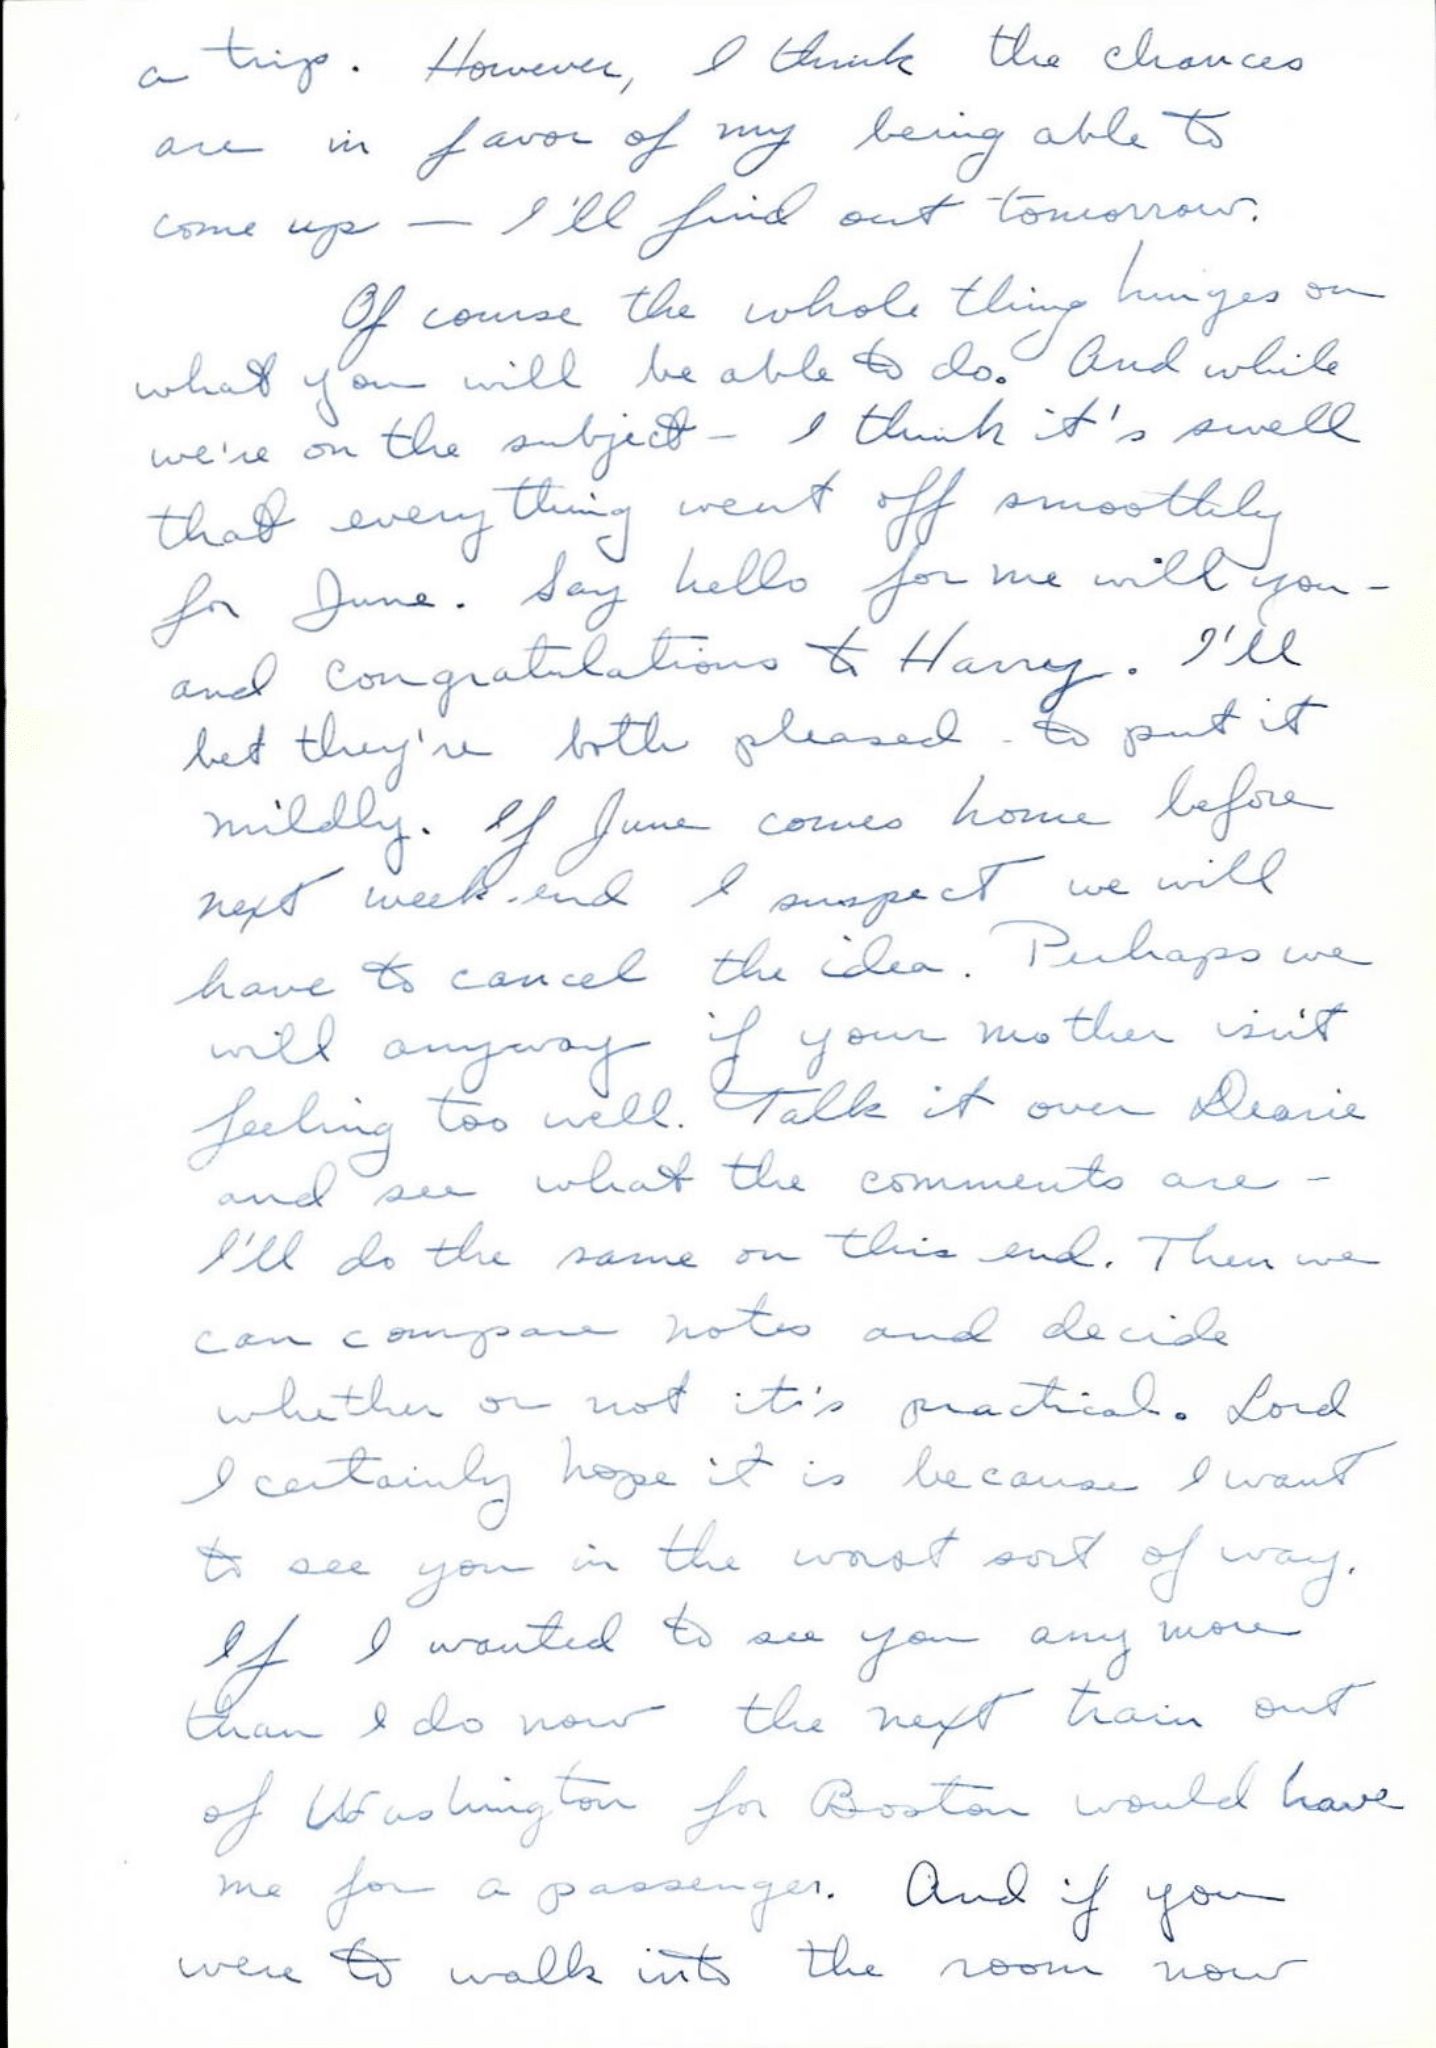 a trip. However, I think the chances
are in favor of my being able to
come up — I'll find out tomorrow.
Of course the whole thing hinges on
what you will be able to do. And while
we're on the subject - I think it's swell
that everything went off smoothly
for June. Say hello for me will you -
and congratulations to Harry. I'll
bet they're both pleased - to put it
mildly. If June comes home before
next week-end I suspect we will
have to cancel the idea. Perhaps we
will anyway if your mother isn't
feeling too well. Talk it over Dearie
and see what the comments are -
I'll do the same on this end. Then we
can compare notes and decide
whether or not it's practical. Lord
I certainly hope it is because I want
to see you in the worst sort of way.
If I wanted to see you any more
than I do now the next train out
of Washington for Boston would have
me for a passenger. And if you
were to walk into the room now